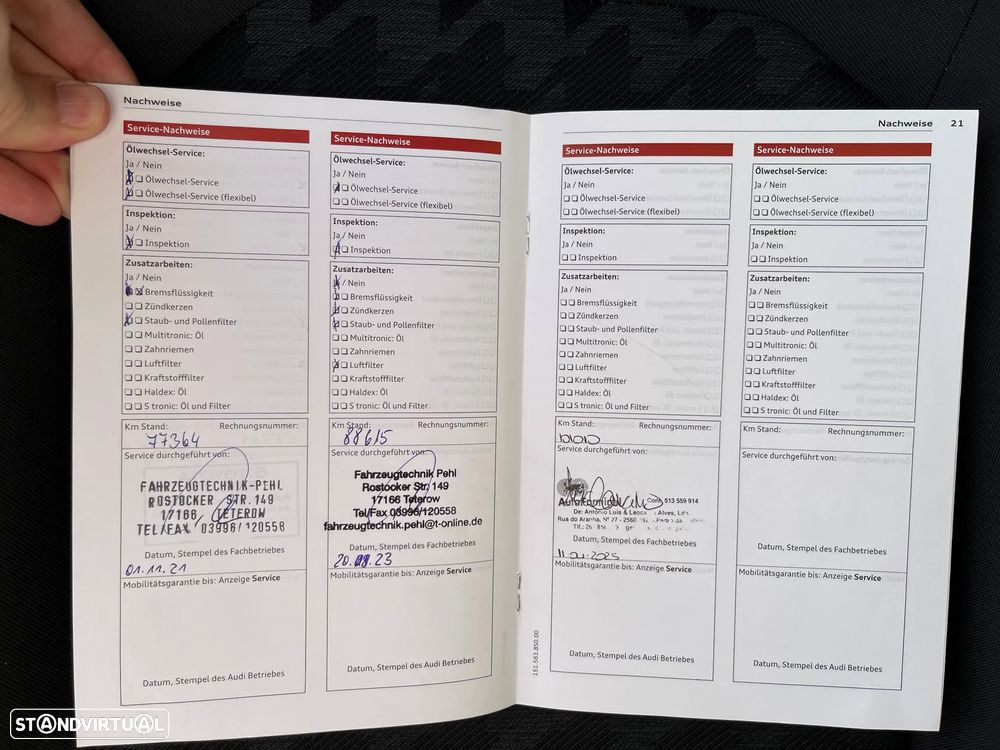 Nachweise
Service-Nachweise
Ölwechsel-Service:
Ja / Nein
Ölwechsel-Service
Ölwechsel-Service (flexibel)
Inspektion:
Ja / Nein
Inspektion
Zusatzarbeiten:
Ja / Nein
Bremsflüssigkeit
Zündkerzen
Staub- und Pollenfilter
Multitronic: Öl
Zahnriemen
Luftfilter
Kraftstofffilter
Haldex: Öl
S tronic: Öl und Filter
Km Stand: Rechnungsnummer:
77364
Service durchgeführt von:
FAHRZEUGTECHNIK-PEHL
ROSTOCKER STR. 149
17166, TETEROW
TEL/FAX 03996/120558
Datum, Stempel des Fachbetriebes
01.11.21
Mobilitätsgarantie bis: Anzeige Service
Datum, Stempel des Audi Betriebes
Service-Nachweise
Ölwechsel-Service:
Ja / Nein
Ölwechsel-Service
Ölwechsel-Service (flexibel)
Inspektion:
Ja / Nein
Inspektion
Zusatzarbeiten:
Ja / Nein
Bremsflüssigkeit
Zündkerzen
Staub- und Pollenfilter
Multitronic: Öl
Zahnriemen
Luftfilter
Kraftstofffilter
Haldex: Öl
S tronic: Öl und Filter
Km Stand: Rechnungsnummer:
88615
Service durchgeführt von:
Fahrzeugtechnik Pehl
Rostocker Str. 149
17166 Teterow
Tel/Fax 03996/120558
fahrzeugtechnik.pehl@t-online.de
Datum, Stempel des Fachbetriebes
Mobilitätsgarantie bis: Anzeige Service
Datum, Stempel des Audi Betriebes
Nachweise 21
Service-Nachweise
Ölwechsel-Service:
Ja / Nein
Ölwechsel-Service
Ölwechsel-Service (flexibel)
Inspektion:
Ja / Nein
Inspektion
Zusatzarbeiten:
Ja / Nein
Bremsflüssigkeit
Zündkerzen
Staub- und Pollenfilter
Multitronic: Öl
Zahnriemen
Luftfilter
Kraftstofffilter
Haldex: Öl
S tronic: Öl und Filter
Km Stand: Rechnungsnummer:
Service durchgeführt von:
Cont. 513 559 914
De: António Luis & Alves, Lda.
Rua do Aranha, Nº 27 - 2560
Datum, Stempel des Fachbetriebes
Mobilitätsgarantie bis: Anzeige Service
Datum, Stempel des Audi Betriebes
Service-Nachweise
Ölwechsel-Service:
Ja / Nein
Ölwechsel-Service
Ölwechsel-Service (flexibel)
Inspektion:
Ja / Nein
Inspektion
Zusatzarbeiten:
Ja / Nein
Bremsflüssigkeit
Zündkerzen
Staub- und Pollenfilter
Multitronic: Öl
Zahnriemen
Luftfilter
Kraftstofffilter
Haldex: Öl
S tronic: Öl und Filter
Km Stand: Rechnungsnummer:
Service durchgeführt von:
Datum, Stempel des Fachbetriebes
Mobilitätsgarantie bis: Anzeige Service
Datum, Stempel des Audi Betriebes
151.563.850.00
STANDVIRTUAL